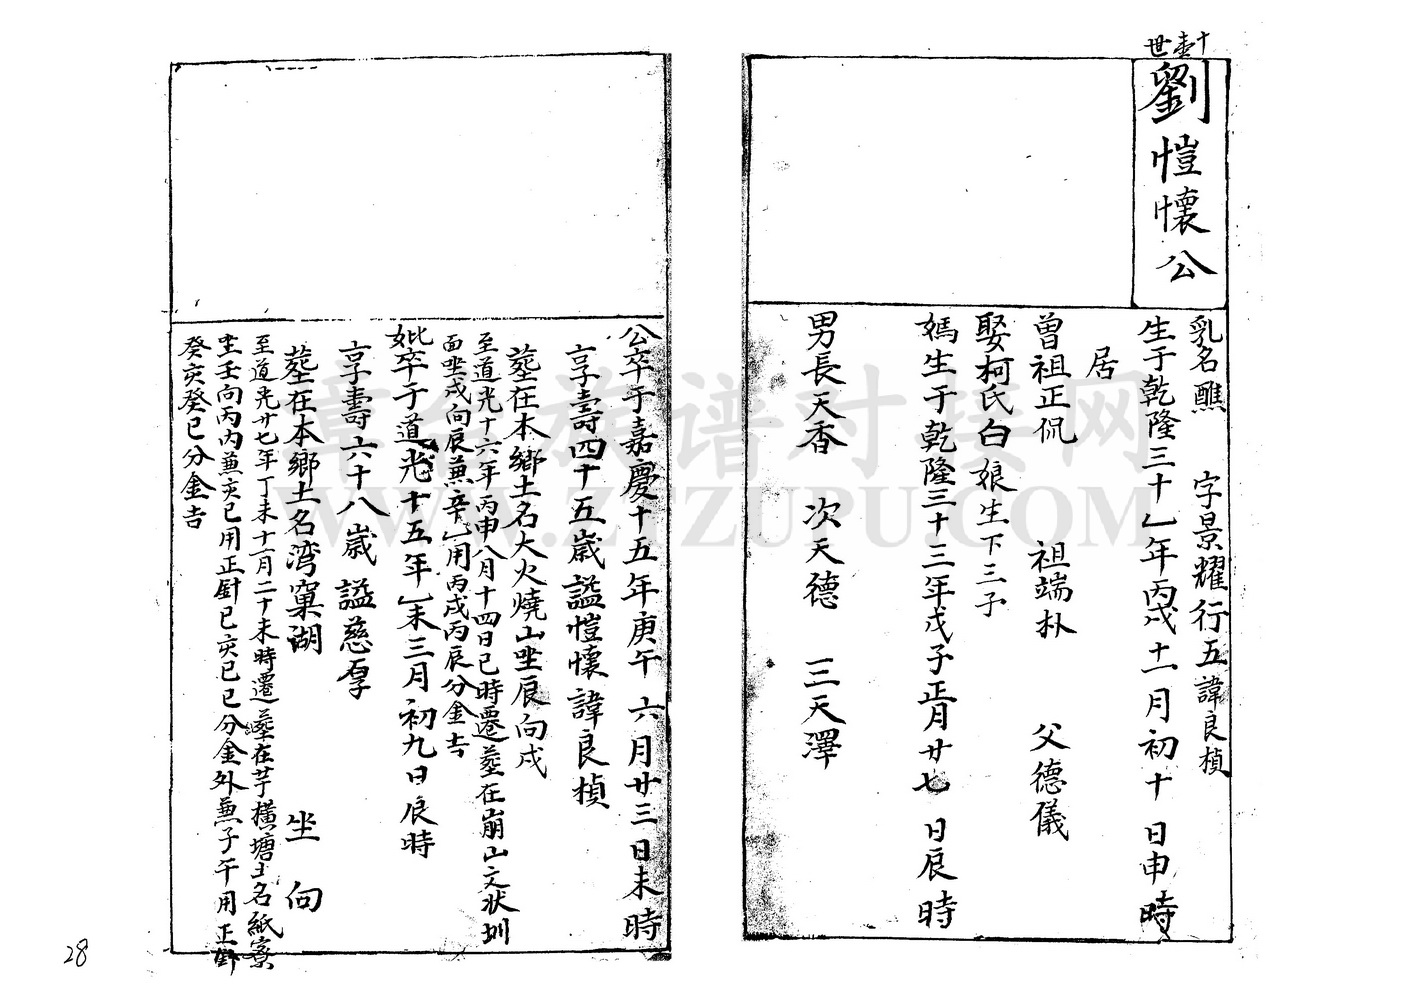 十壹世
劉愷懷公
乳名醮 字景耀行五諱良楨
生于乾隆三十乚年丙戌十一月初十日申時
居
曾祖正侃 祖端朴 父德儀
娶柯氏白娘生下三子
媽生于乾隆三十三年戊子正月廿七日辰時
男長天香 次天德 三天澤
公卒于嘉慶十五年庚午六月廿三日未時
享壽四十五歲謚愷懷諱良楨
塟在本鄉土名大火燒山坐辰向戌
至道光十六年丙申八月十四日巳時遷塟在崩山文狀圳
面坐戌向辰兼辛乚用丙戌丙辰分金吉
妣卒于道光十五年乚未三月初九日辰時
享壽六十八歲謚慈厚
塟在本鄉土名湾窠湖 坐 向
至道光廿七年丁未十一月二十未時遷塟在芋橫塘土名紙寮
坐壬向丙內兼亥巳用正針巳亥巳巳分金外兼子午用正針
癸亥癸巳分金吉
章台族谱对接网
WWW.ZTZUPU.COM
28